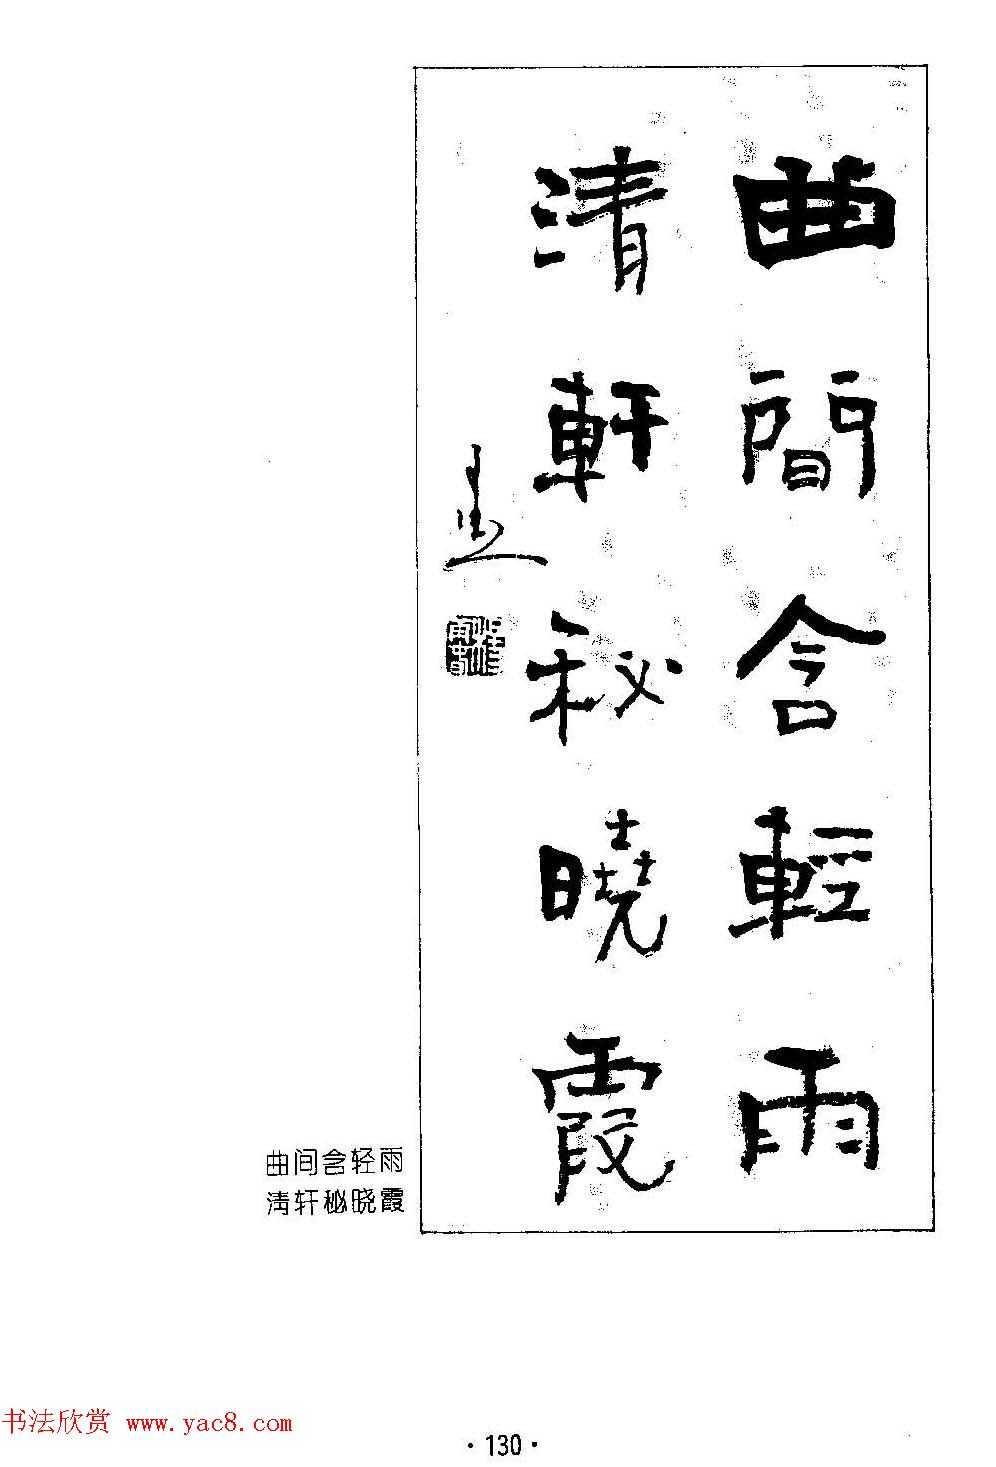 曲間含輕雨
清軒秘曉霞
曲间含轻雨
清轩秘晓霞
书法欣赏 www.yac8.com
· 130 ·